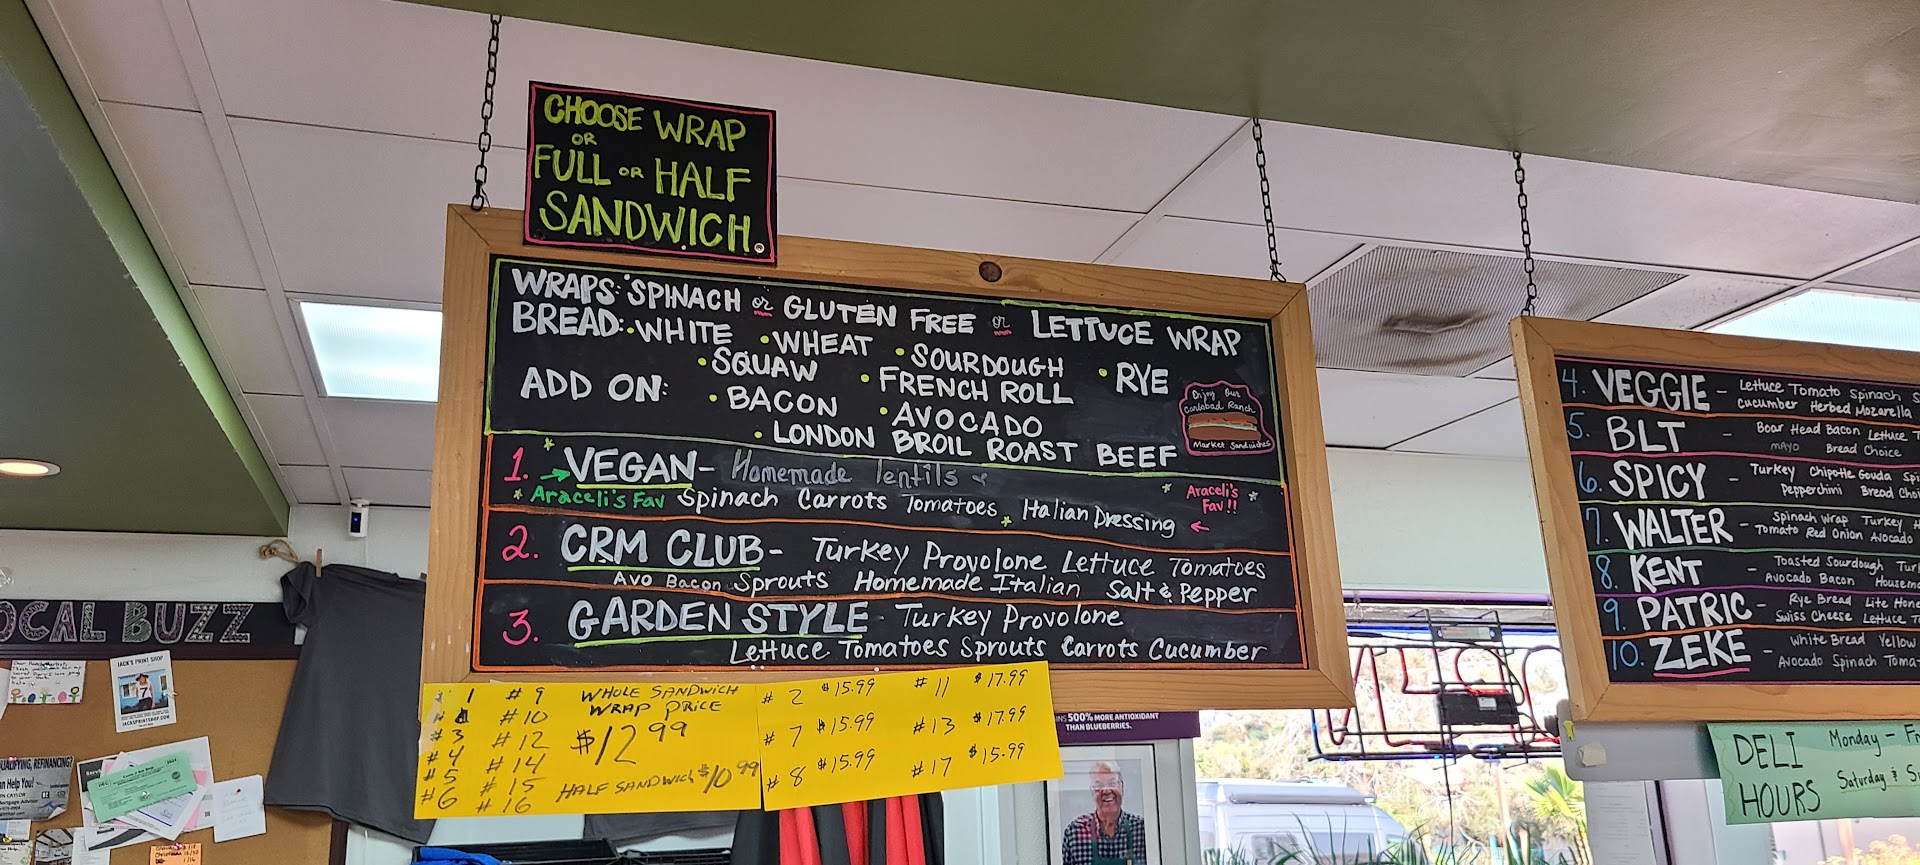 CHOOSE WRAP
OR
FULL OR HALF
SANDWICH.
WRAPS: SPINACH or GLUTEN FREE or LETTUCE WRAP
BREAD: •WHITE •WHEAT •SOURDOUGH •RYE
•SQUAW •FRENCH ROLL
ADD ON: •BACON •AVOCADO
•LONDON BROIL ROAST BEEF
Enjoy Our
Carlsbad Ranch
Market Sandwiches
1. VEGAN- Homemade lentils &
Araceli's Fav Spinach Carrots Tomatoes Italian Dressing
Araceli's
Fav!!
2. CRM CLUB- Turkey Provolone Lettuce Tomatoes
Avo Bacon Sprouts Homemade Italian Salt & Pepper
3. GARDEN STYLE- Turkey Provolone
Lettuce Tomatoes Sprouts Carrots Cucumber
4. VEGGIE - Lettuce Tomato Spinach
Cucumber Herbed Mozarella
5. BLT - Boar Head Bacon Lettuce
mayo Bread Choice
6. SPICY - Turkey Chipotle Gouda
Pepperchini Bread
7. WALTER - Spinach Wrap Turkey
Tomato Red Onion Avocado
8. KENT - Toasted Sourdough
Avocado Bacon
9. PATRIC - Rye Bread Lite
Swiss Cheese Lettuce
10. ZEKE - White Bread Yellow
Avocado Spinach
1 #9 WHOLE SANDWICH
#10 WRAP PRICE
#3 #12 $12.99
#4 #14
#5 #15 HALF SANDWICH $10.99
#6 #16
#2 $15.99 #11 $17.99
#7 $15.99 #13 $17.99
#8 $15.99 #17 $15.99
DELI Monday -
HOURS Saturday &
500% MORE ANTIOXIDANT
THAN BLUEBERRIES.
OCAL BUZZ
JACK'S PRINT SHOP
QUALIFYING, REFINANCING?
Help You!